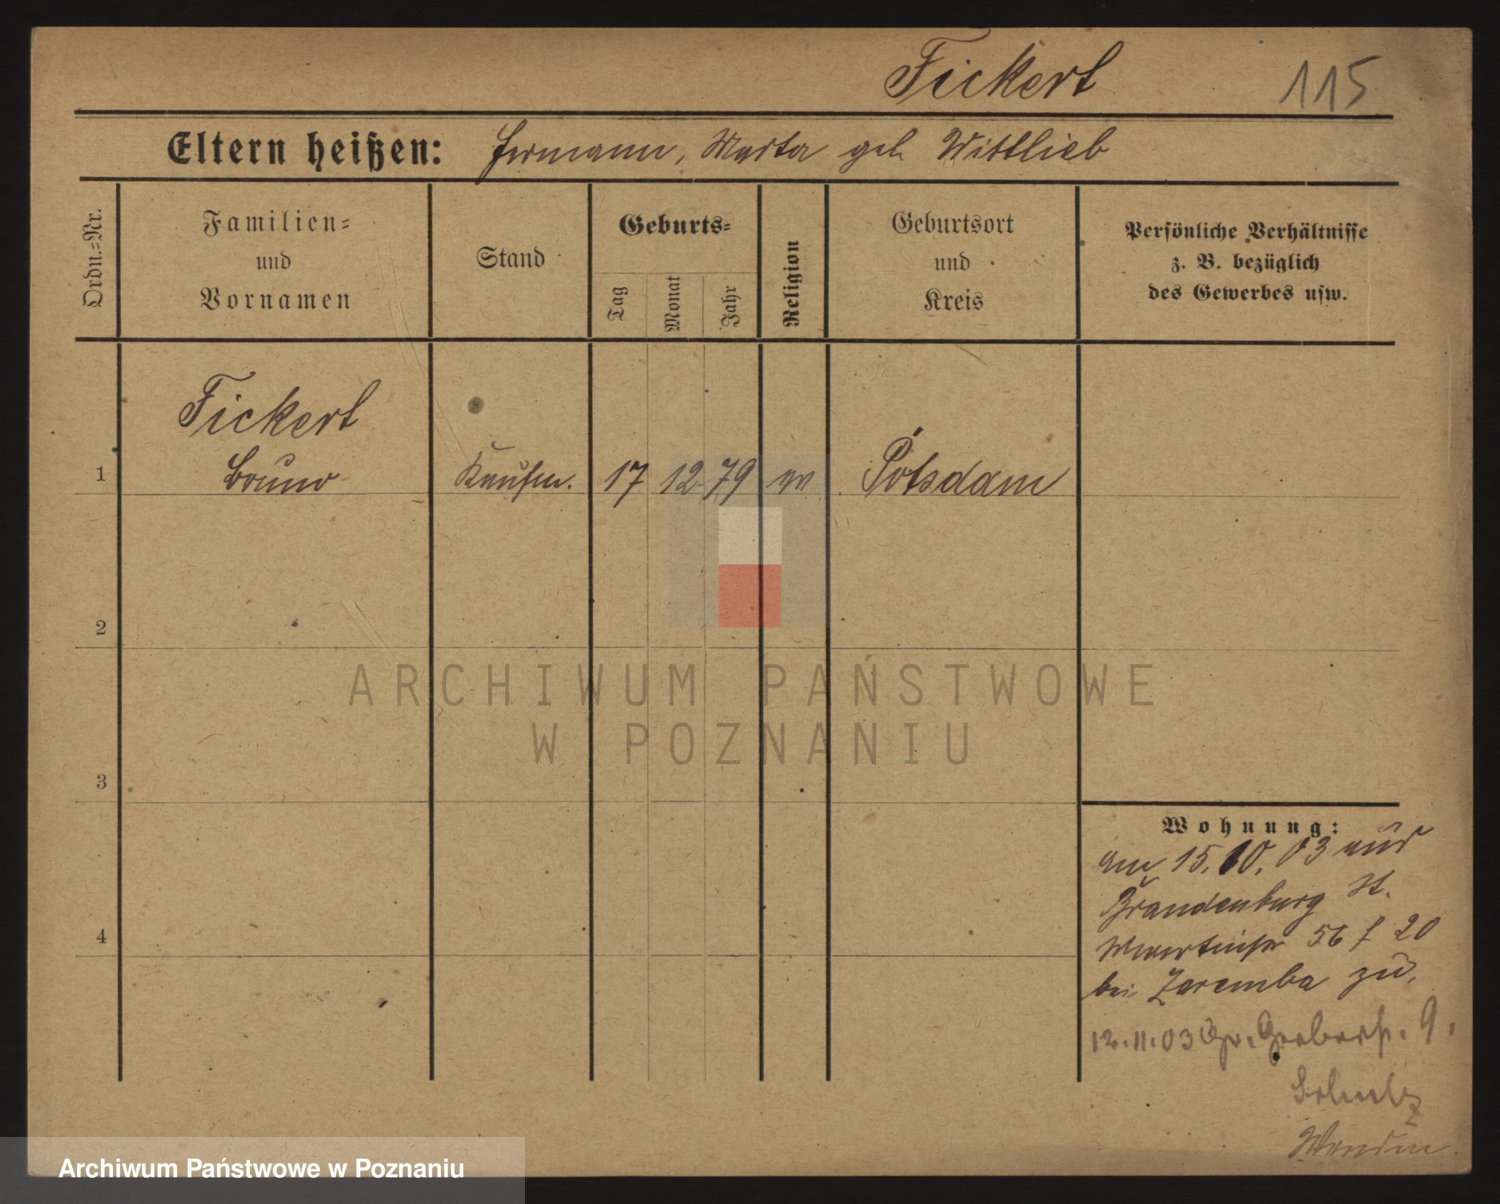 Fickert 115
Eltern heißen: Hermann, Marta geb. Wittlieb
Ordn.=Nr.
Familien=
und
Vornamen
Stand
Geburts=
Tag
Monat
Jahr
Religion
Geburtsort
und
Kreis
Persönliche Verhältnisse
z. B. bezüglich
des Gewerbes usw.
Fickert
1 Bruno Kaufm. 17 12 79 ev Potsdam
2
3
4
Wohnung:
am 15. 10. 03 aus
Brandenburg
56 20
bei Zaremba zu.
12.11.03 Gr. Gerberstr. 9.
Schulz
ARCHIWUM PAŃSTWOWE
W POZNANIU
Archiwum Państwowe w Poznaniu